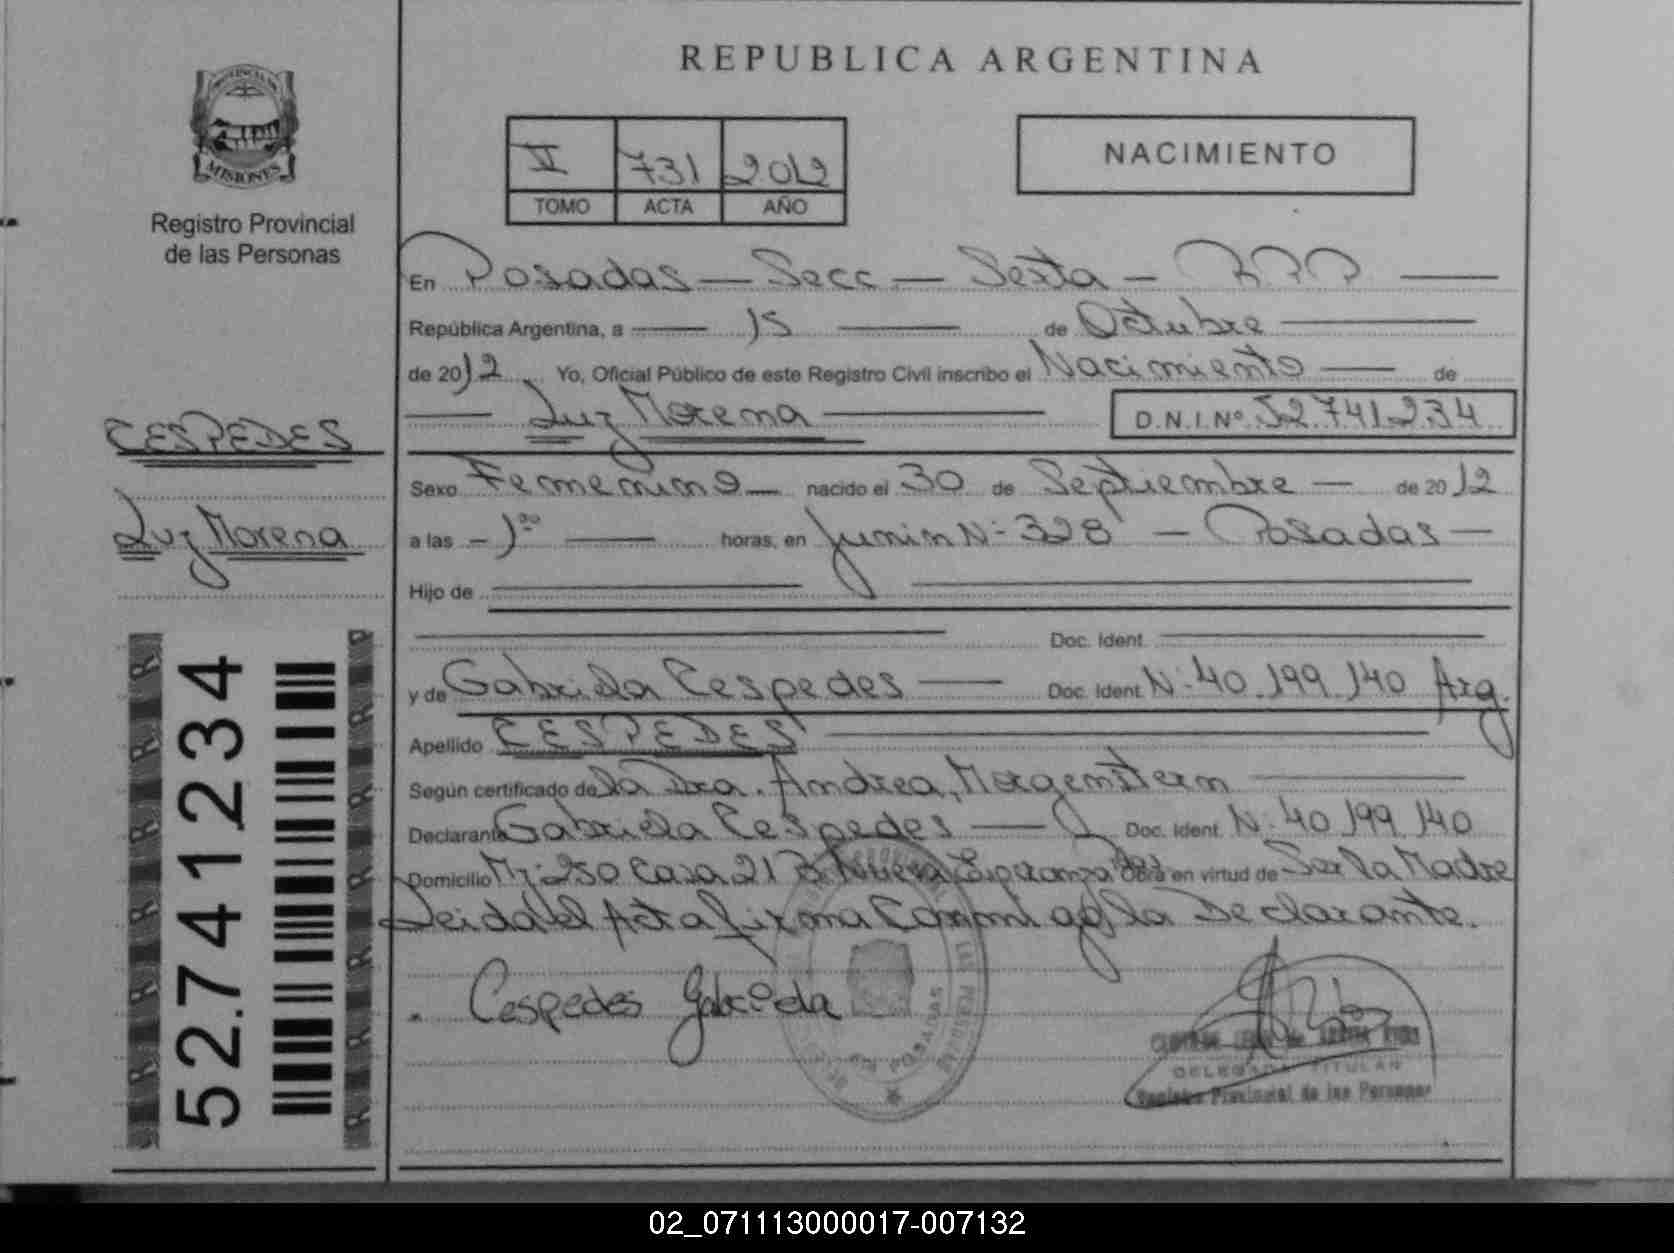 REPUBLICA ARGENTINA
PROVINCIA DE
MISIONES
Registro Provincial
de las Personas
II 731 2012
TOMO ACTA AÑO
NACIMIENTO
En Posadas — Secc — Sexta — RPP
República Argentina, a 15 de Octubre
de 2012 Yo, Oficial Público de este Registro Civil inscribo el Nacimiento de
Luz Morena D.N.I. Nº 52.741.234
CESPEDES
Luz Morena
Sexo Femenino nacido el 30 de Septiembre de 2012
a las 1 horas, en Junin Nº 328 — Posadas —
Hijo de
Doc. Ident.
y de Gabriela Cespedes Doc. Ident. Nº 40.199.140 Arg.
Apellido CESPEDES
Según certificado de la Dra. Andrea Morgenstern
Declarante Gabriela Cespedes Doc. Ident. Nº 40.199.140
Domicilio Mz 250 Casa 21 Bº Nueva Esperanza Obra en virtud de Ser la Madre
Leida el Acta firma Conmigo la Declarante.
Cespedes Gabriela
POSADAS
DELEGADA TITULAR
Registro Provincial de las Personas
R R R R R R
52.741.234
02_071113000017-007132